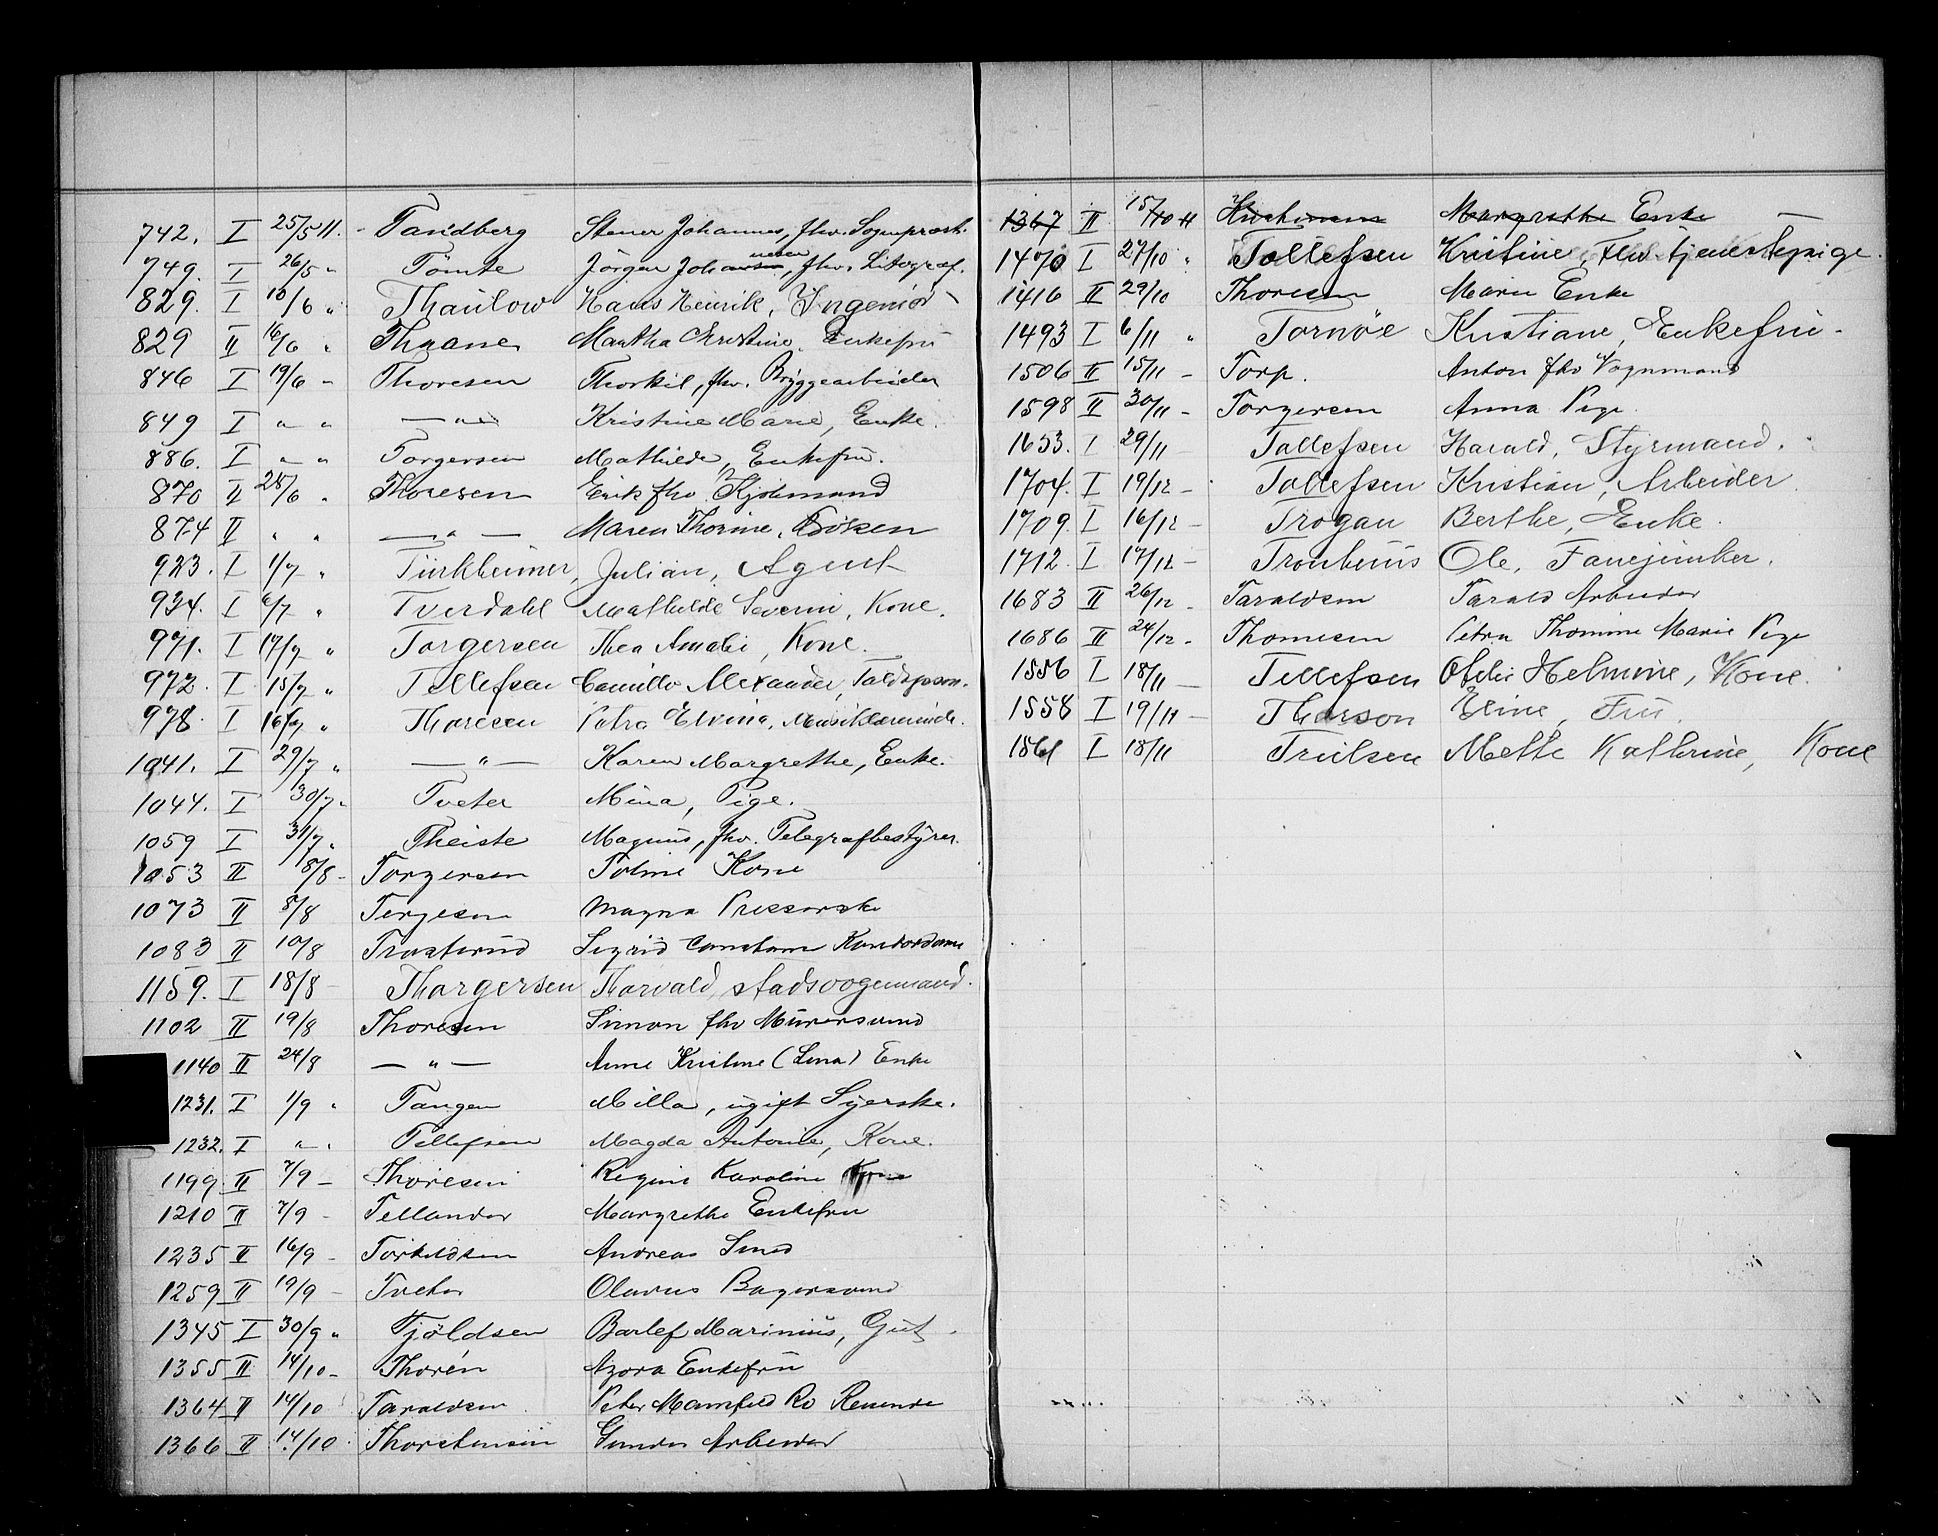 742. I 25/5 11. Tandberg Stener Johannes, fhv. Sogneprest.
749. I 26/5 " Tömte Jörgen Johannesen, fhv. Litograf.
829. I 10/6 " Thaulow Hans Henrik, Ingeniör
829 II 16/6 " Thrane Martha Christine, Enkefru
846 I 19/6 - Thoresen Thorkil, fhv. Bryggearbeider
849 I " " — " — Kristine Marie, Enke.
886. I " " Torgersen Mathilde, Enkefru.
870 II 28/6 " Thoresen Erik fhv.
874 II " " — " — Maren Thorine,
923. I 1/7 " Türkheimer, Julian, Agent
934. I 6/7 " Tverdahl Mathilde Severin, Kone.
971. I 17/7 " Torgersen Thea Amalie, Kone.
972. I 15/7 " Tellefsen Camillo Alexander,
978. I 16/7 " Thoresen Petra Elvina, Musiklærerinde.
1041. I 29/7 " — " — Karen Margrethe, Enke.
1044. I 30/7 " Tveter Mina, Pige.
1059 I 31/7 " Theiste Magnus, fhv. Telegrafbestyrer.
1053 II 8/8 - Torgersen Kone
1073 II 8/8 Tergesen Magna Presserske
1083 II 10/8 Trosterud Sigrid Constance Kontordame
1159. I 18/8 - Thorgersen Thorvald, stadsvognmand.
1102 II 19/8 Thoresen Simon fhv Murersvend
1140 II 24/8 — " — Anne Kristine (Lina) Enke
1231. I 1/9 " Tangen Milla, ugift Syerske.
1232. I " " Tellefsen Magda Antonie, Kone.
1199 II 7/9 - Thoresen Regine Karoline Kone
1210 II 7/9 - Tellander Margrethe Enkefru
1235 II 16/9 - Torkildsen Andreas Smed
1259 II 19/9 - Tveter Olavus Bagersvend
1345 I 30/9 " Tjöldsen Barlef Marinius, Gut.
1355 II 14/10 - Thorén Azora Enkefru
1364 II 14/10 Taraldsen Peter
1366 II 14/10 Thorstensen Gunder Arbeider
1367 II 15/10 11 Margrethe Enke —
1470 I 27/10 " Tollefsen Kristine, Fhv. tjenestepige.
1416 II 29/10 Thoresen Marie Enke
1493 I 6/11 " Tornøe Kristiane, Enkefru.
1506 II 15/11 - Torp. Anton fhv Vognmand
1598 II 30/11 - Torgersen Anna Pige.
1653. I 29/11 Tollefsen Harald, Styrmand.
1704. I 19/12 - Tollefsen Kristian, Arbeider.
1709. I 16/12 - Trogan Berthe, Enke.
1712. I 17/12 - Tronhuus Ole, Fanejunker.
1683 II 26/12 - Taraldsen Tarald Arbeider
1686 II 24/12 - Thomesen Petra Thomine Marie Pige
1556 I 18/11 - Tellefsen Ofelie Helmine, Kone.
1558 I 19/11 - Thorson Eline, Fru.
1561 I 18/11 Trulsen Mette Kathrine, Kone